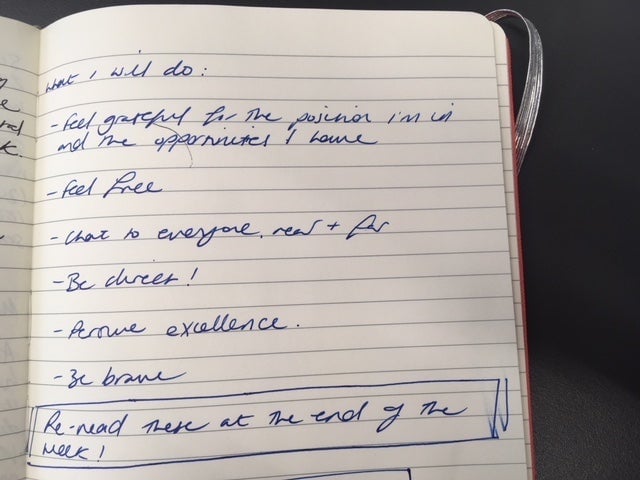 What I will do:
- Feel grateful for the position i'm in
and the opportunities I have
- Feel free
- Chat to everyone, near + far
- Be direct!
- excellence.
- Be brave
Re-read these at the end of the
week!